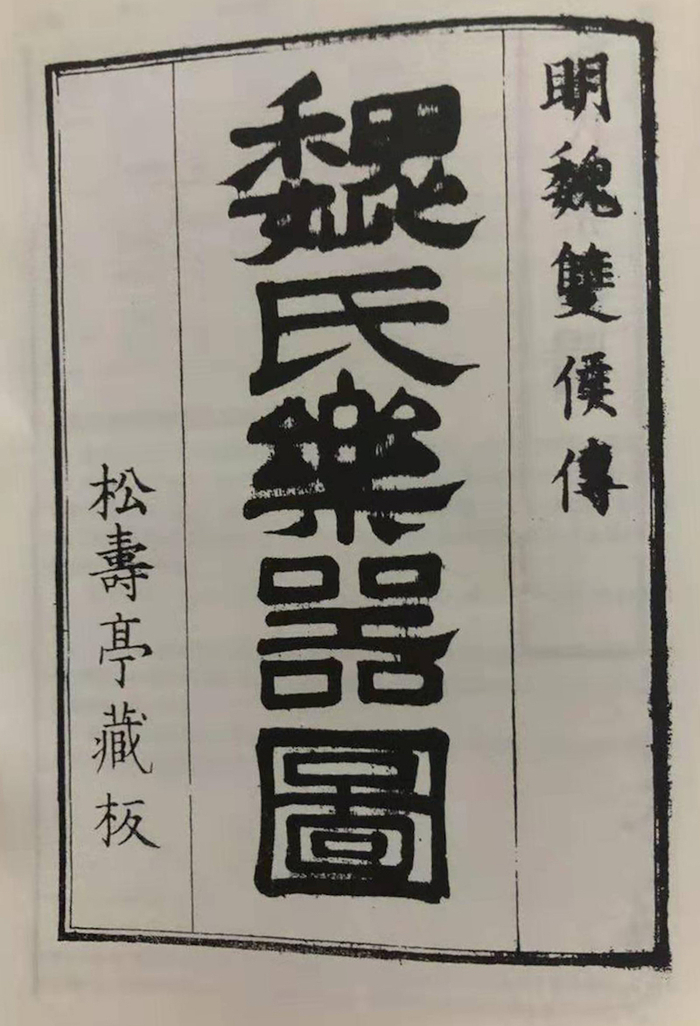 明魏雙侯傳
魏氏樂器圖
松壽亭藏板